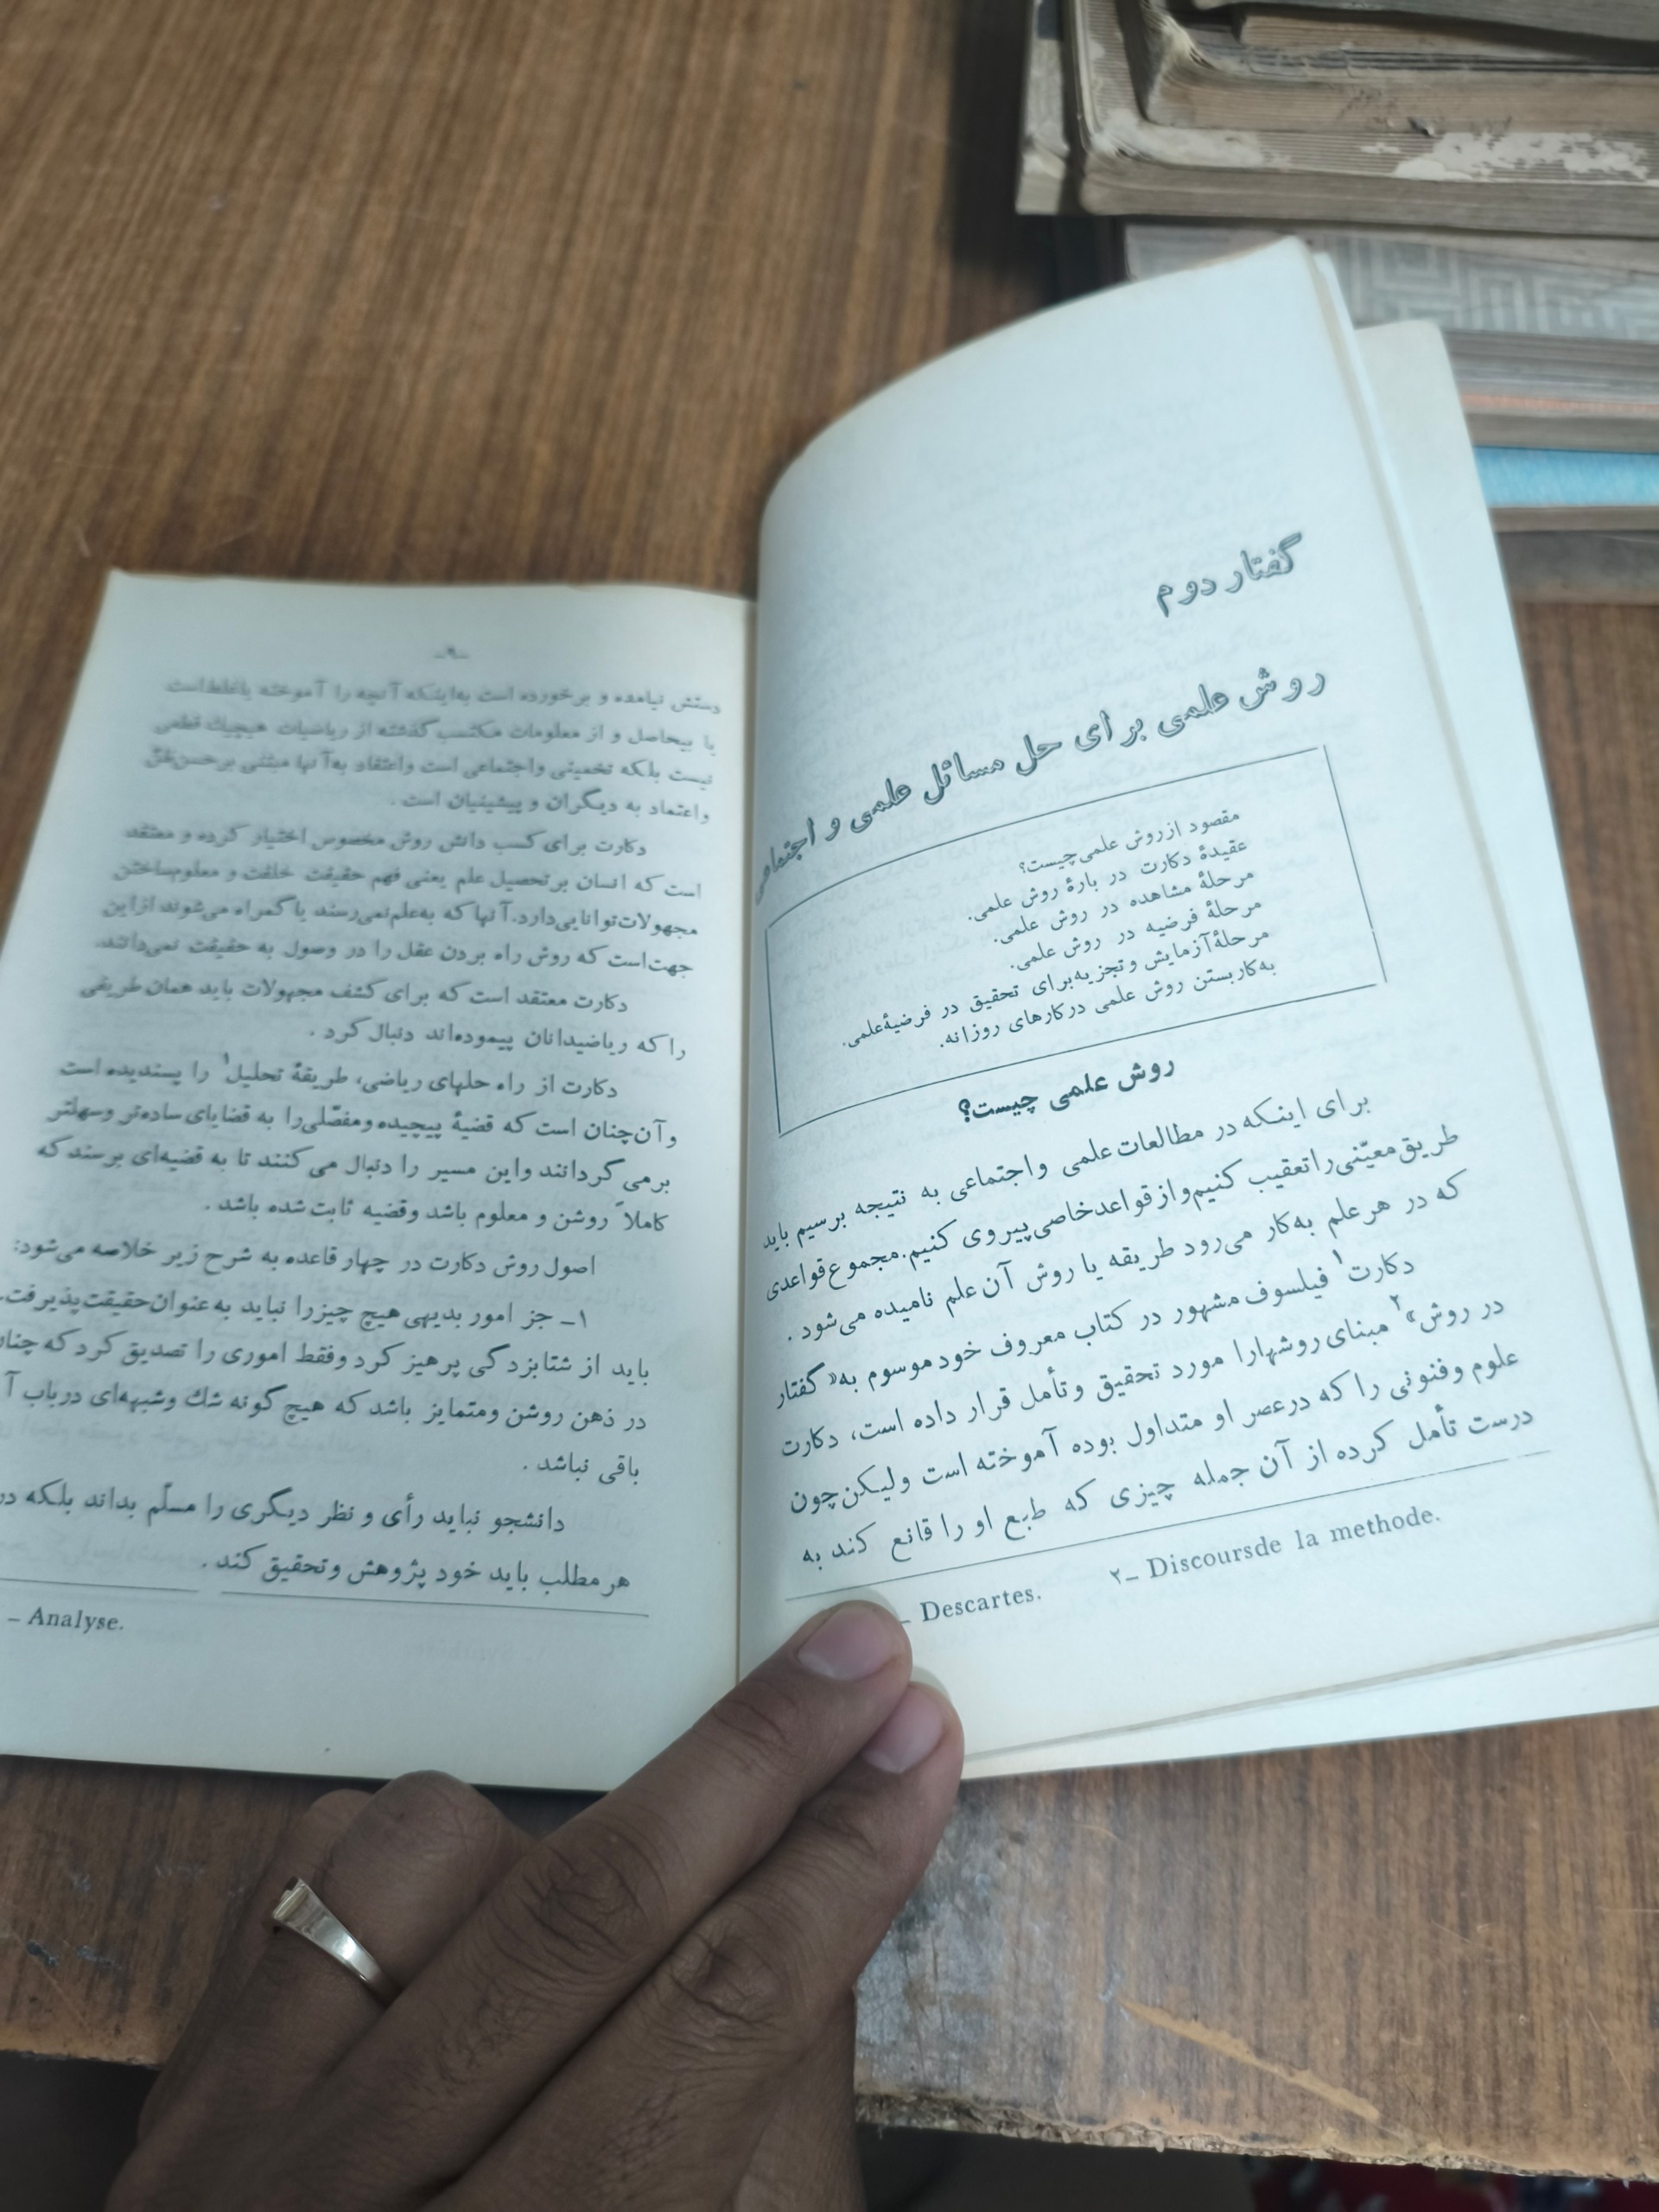 گفتار دوم
روش علمی برای حل مسائل علمی و اجتماعی
مقصود ازروش علمی‌چیست؟
عقیدهٔ دکارت در بارهٔ روش علمی.
مرحلهٔ مشاهده در روش علمی.
مرحلهٔ فرضیه در روش علمی.
مرحلهٔ آزمایش و تجزیه برای تحقیق در فرضیهٔ علمی.
به‌کاربستن روش علمی درکارهای روزانه.
روش علمی چیست؟
برای اینکه در مطالعات علمی واجتماعی به نتیجه برسیم باید
طریق معیّنی راتعقیب کنیم‌وازقواعدخاصی‌پیروی کنیم. مجموع‌قواعدی
که در هرعلم به‌کار می‌رود طریقه یا روش آن علم نامیده می‌شود .
دکارت۱ فیلسوف مشهور در کتاب معروف خود موسوم به«گفتار
در روش»۲ مبنای روشهارا مورد تحقیق وتأمل قرار داده است، دکارت
علوم وفنونی را که درعصر او متداول بوده آموخته است ولیکن‌چون
درست تأمل کرده از آن جمله چیزی که طبع او را قانع کند به
– Descartes.   ۲– Discoursde la methode.
–۹–
دستش نیامده و برخورده است به‌اینکه آنچه را آموخته یاغلط‌است
یا بیحاصل و از معلومات مکتسب گذشته از ریاضیات هیچیك قطعی
نیست بلکه تخمینی واجتماعی است واعتقاد به‌آنها مبتنی برحسن‌ظنّ
واعتماد به دیگران و پیشینیان است .
دکارت برای کسب دانش روش مخصوص اختیار کرده و معتقد
است که انسان برتحصیل علم یعنی فهم حقیقت خلقت و معلوم‌ساختن
مجهولات‌توانایی‌دارد. آنها که به‌علم‌نمی‌رسند یا گمراه می‌شوند ازاین
جهت‌است که روش راه بردن عقل را در وصول به حقیقت نمی‌دانند.
دکارت معتقد است که برای کشف مجهولات باید همان طریقی
را که ریاضیدانان پیموده‌اند دنبال کرد .
دکارت از راه حلهای ریاضی، طریقهٔ تحلیل۱ را پسندیده است
وآن‌چنان است که قضیهٔ پیچیده ومفصّلی‌را به قضایای ساده‌تر وسهلتر
برمی گردانند واین مسیر را دنبال می‌کنند تا به قضیه‌ای برسند که
کاملاً روشن و معلوم باشد وقضیه ثابت شده باشد .
اصول روش دکارت در چهار قاعده به شرح زیر خلاصه می‌شود:
۱– جز امور بدیهی هیچ چیزرا نباید به‌عنوان‌حقیقت‌پذیرفت.
باید از شتابزدگی پرهیز کرد وفقط اموری را تصدیق کرد که چنان
در ذهن روشن ومتمایز باشد که هیچ گونه شك وشبهه‌ای درباب آ
باقی نباشد .
دانشجو نباید رأی و نظر دیگری را مسلّم بداند بلکه در
هرمطلب باید خود پژوهش وتحقیق کند .
– Analyse.